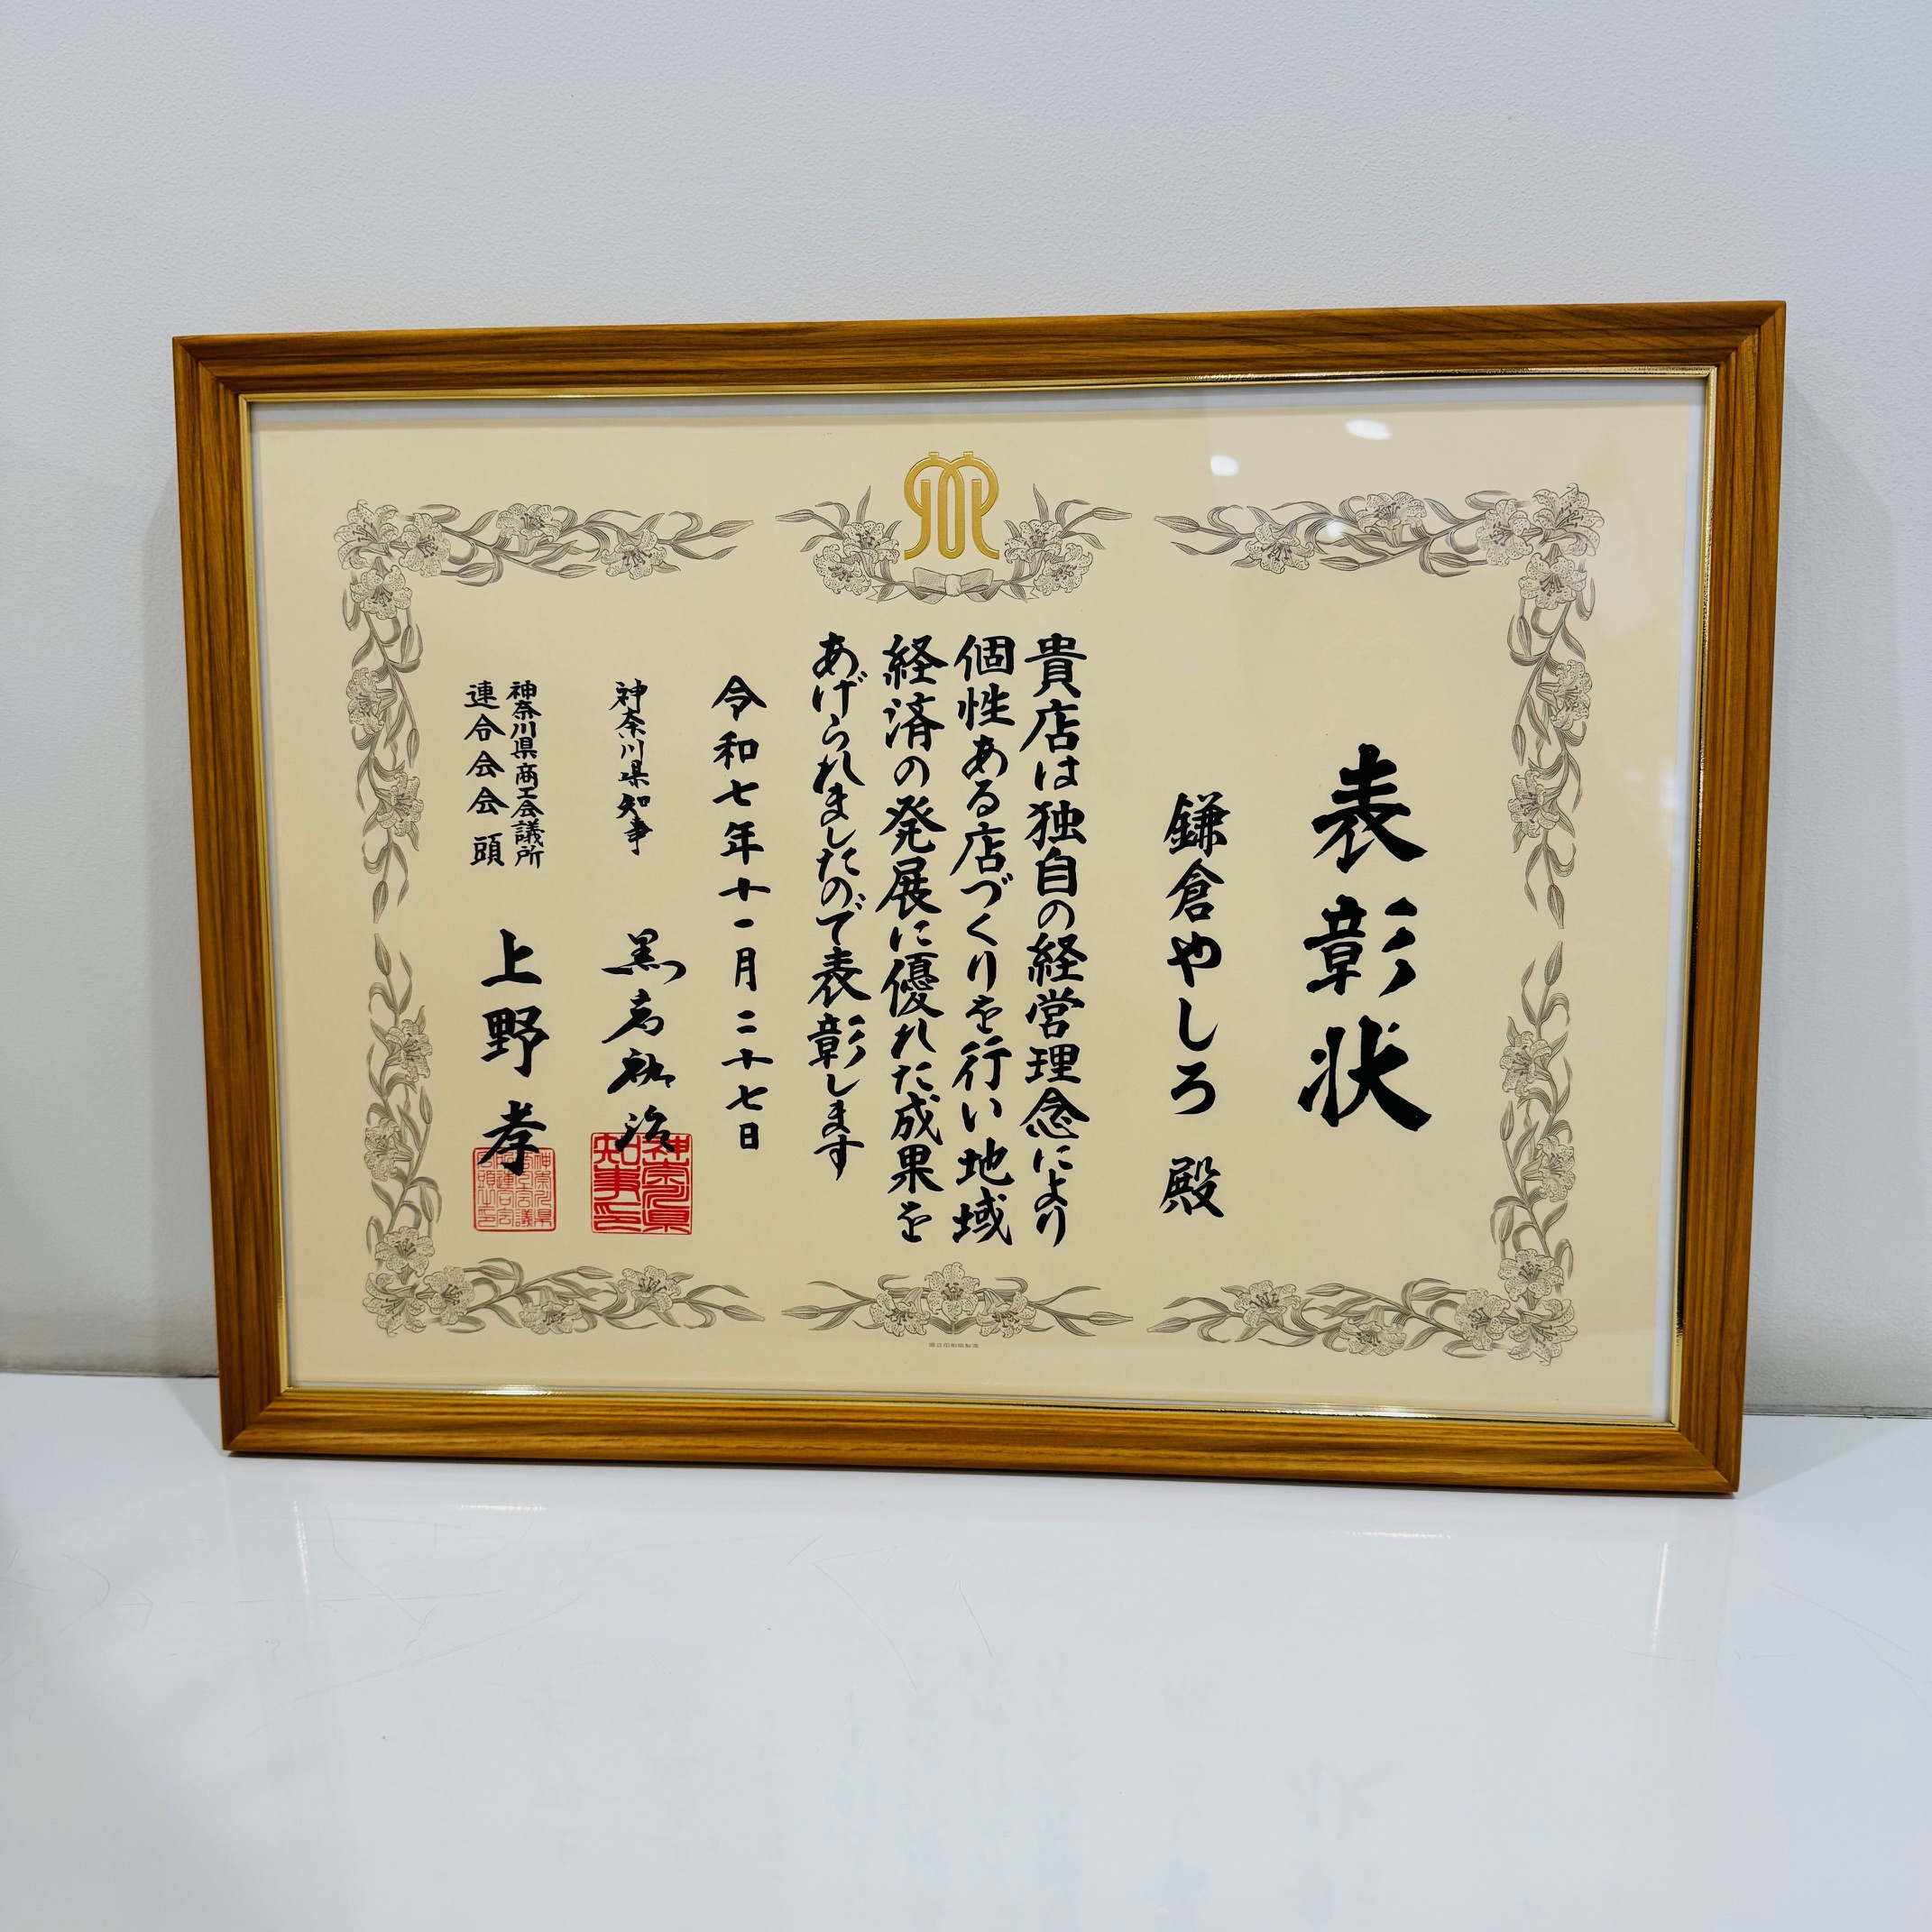 表彰状
鎌倉やしろ 殿
貴店は独自の経営理念により
個性ある店づくりを行い地域
経済の発展に優れた成果を
あげられましたので表彰します
令和七年十一月二十七日
神奈川県知事 黒岩祐治
神奈川県知事印
神奈川県商工会議所
連合会会頭 上野孝
国立印刷局製造